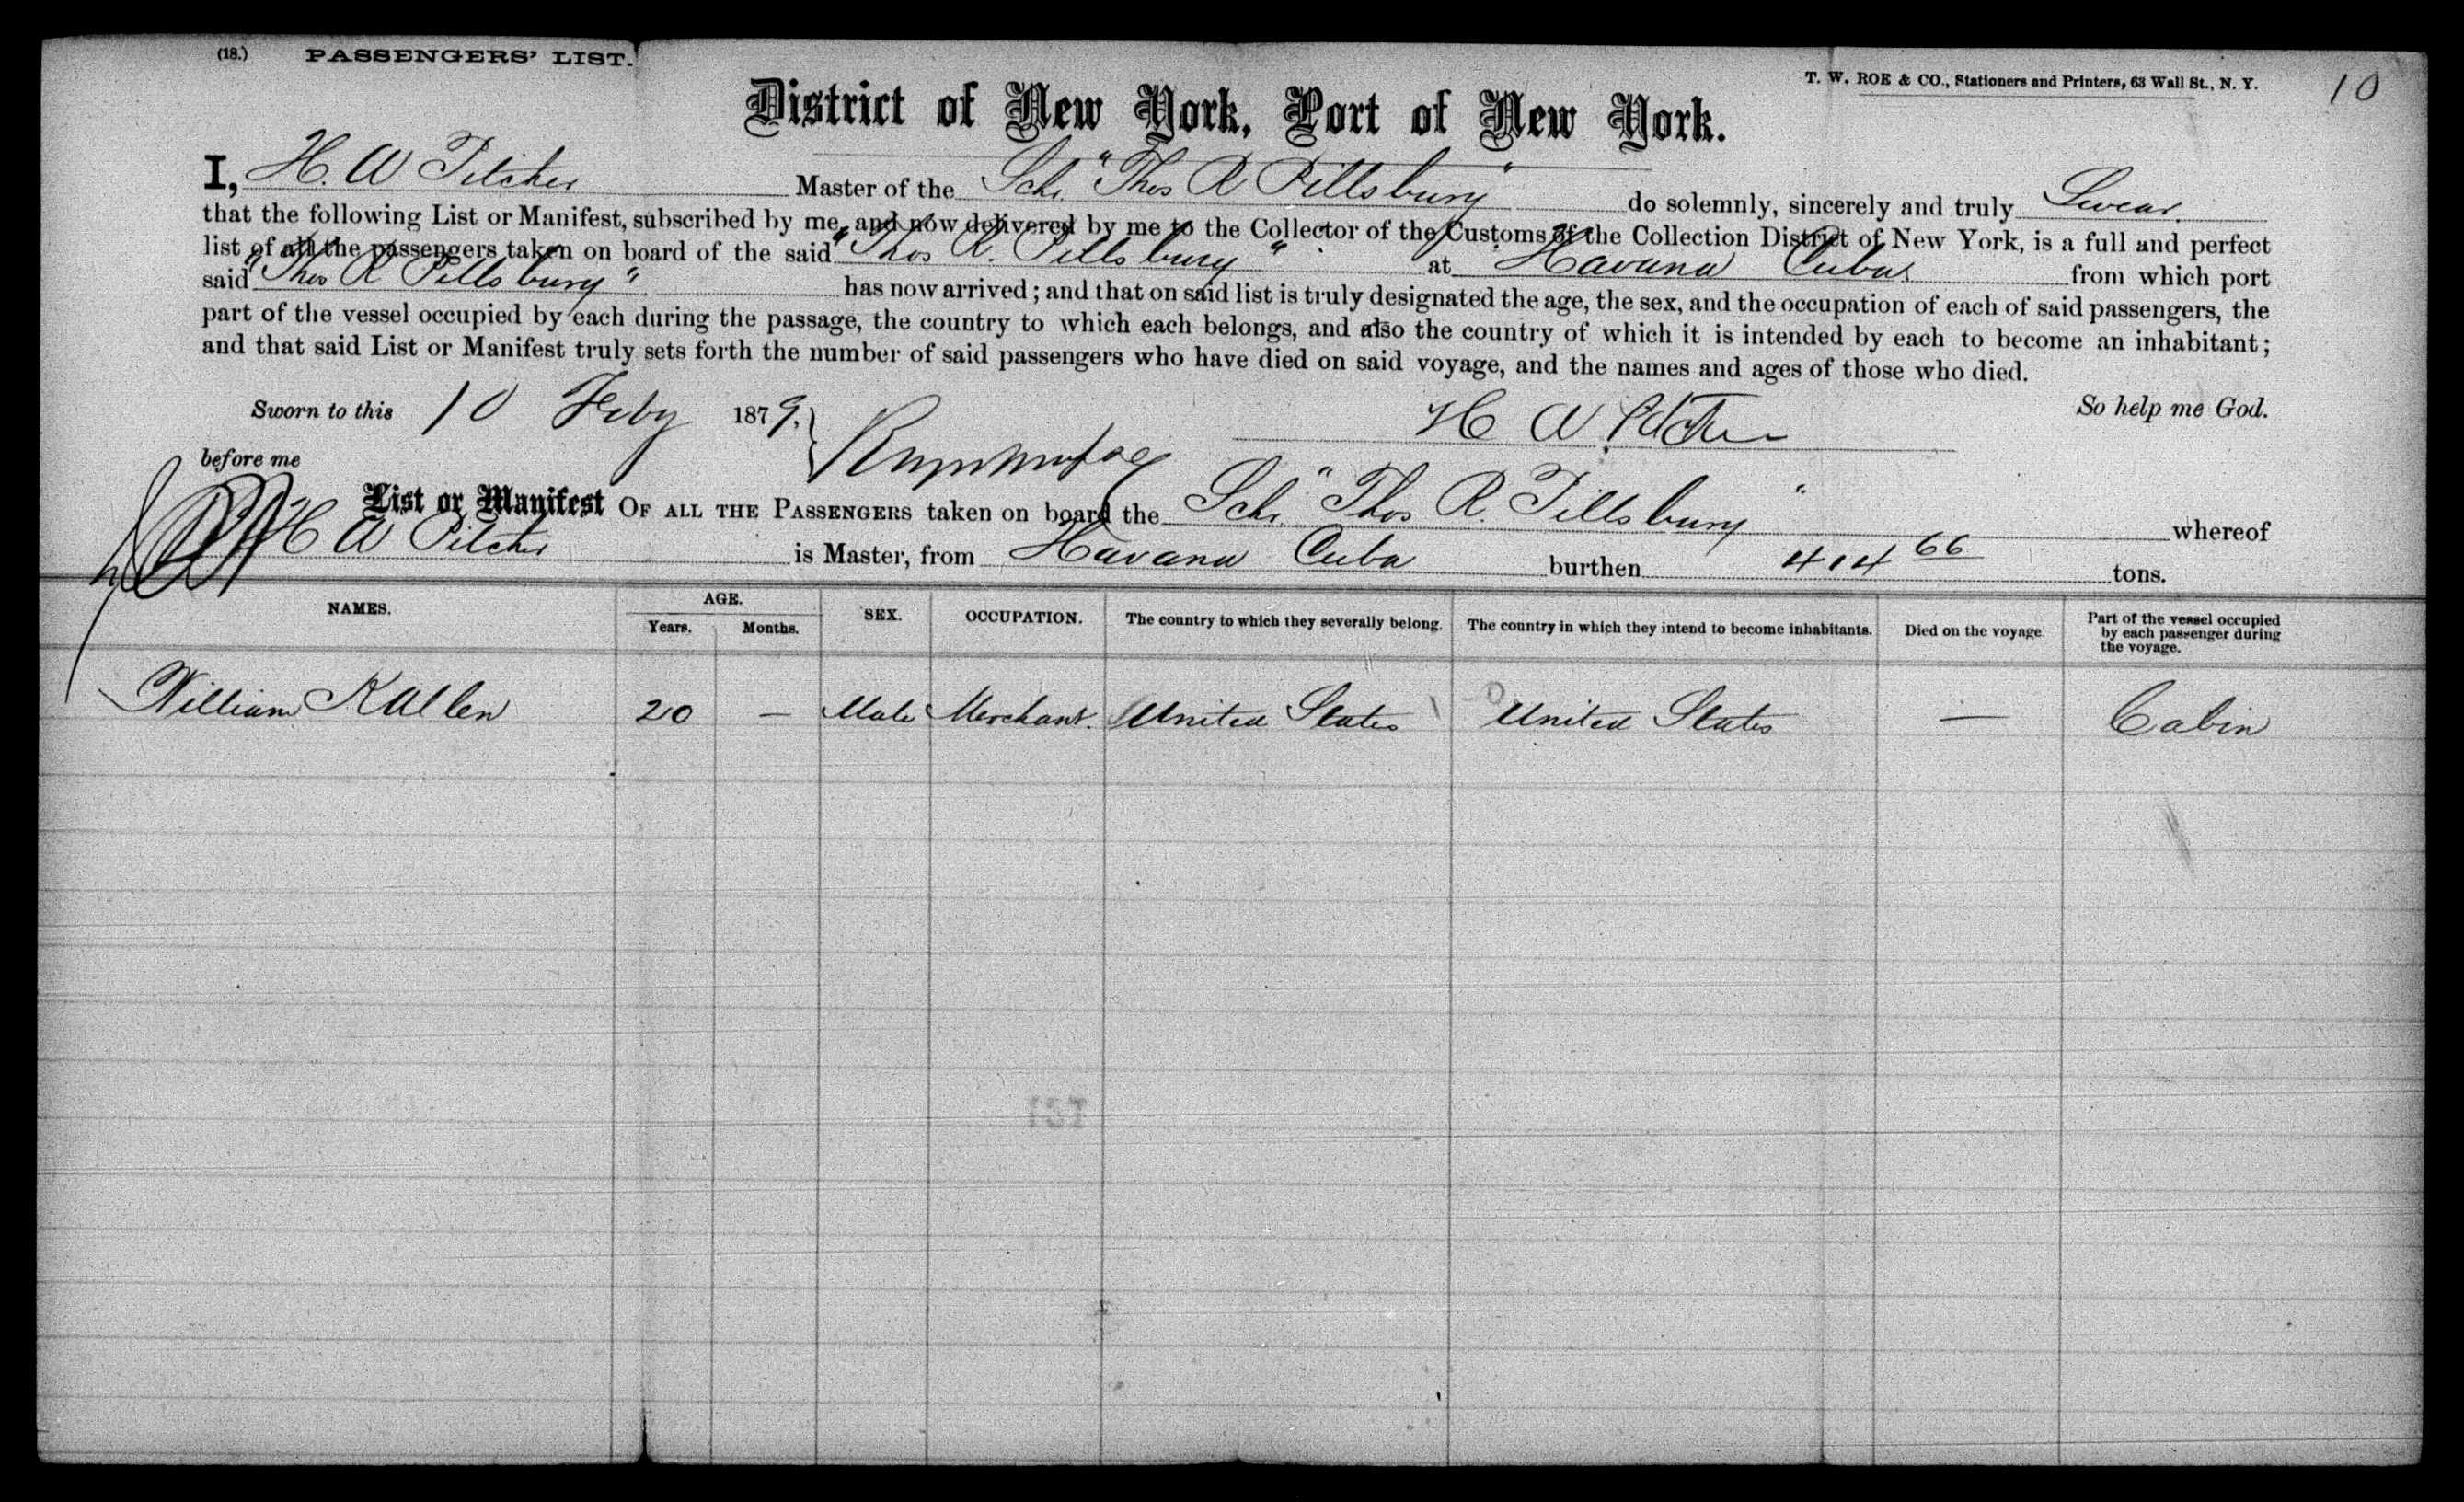 (18.) PASSENGERS' LIST.
T. W. ROE & CO., Stationers and Printers, 63 Wall St., N. Y. 10
District of New York, Port of New York.
I, H. W Pitcher Master of the Sch. "Thos R Pillsbury" do solemnly, sincerely and truly Swear
that the following List or Manifest, subscribed by me, and now delivered by me to the Collector of the Customs of the Collection District of New York, is a full and perfect
list of all the passengers taken on board of the said "Thos R. Pillsbury" at Havana Cuba from which port
said "Thos R Pillsbury" has now arrived; and that on said list is truly designated the age, the sex, and the occupation of each of said passengers, the
part of the vessel occupied by each during the passage, the country to which each belongs, and also the country of which it is intended by each to become an inhabitant;
and that said List or Manifest truly sets forth the number of said passengers who have died on said voyage, and the names and ages of those who died.
Sworn to this 10 Feby 1879. H W Pitcher So help me God.
before me
List or Manifest OF ALL THE PASSENGERS taken on board the Sch. "Thos R. Pillsbury" whereof
H W Pitcher is Master, from Havana Cuba burthen 414 66 tons.
NAMES. AGE. Years. Months. SEX. OCCUPATION. The country to which they severally belong. The country in which they intend to become inhabitants. Died on the voyage. Part of the vessel occupied by each passenger during the voyage.
William K Allen 20 — Male Merchant. United States United States — Cabin